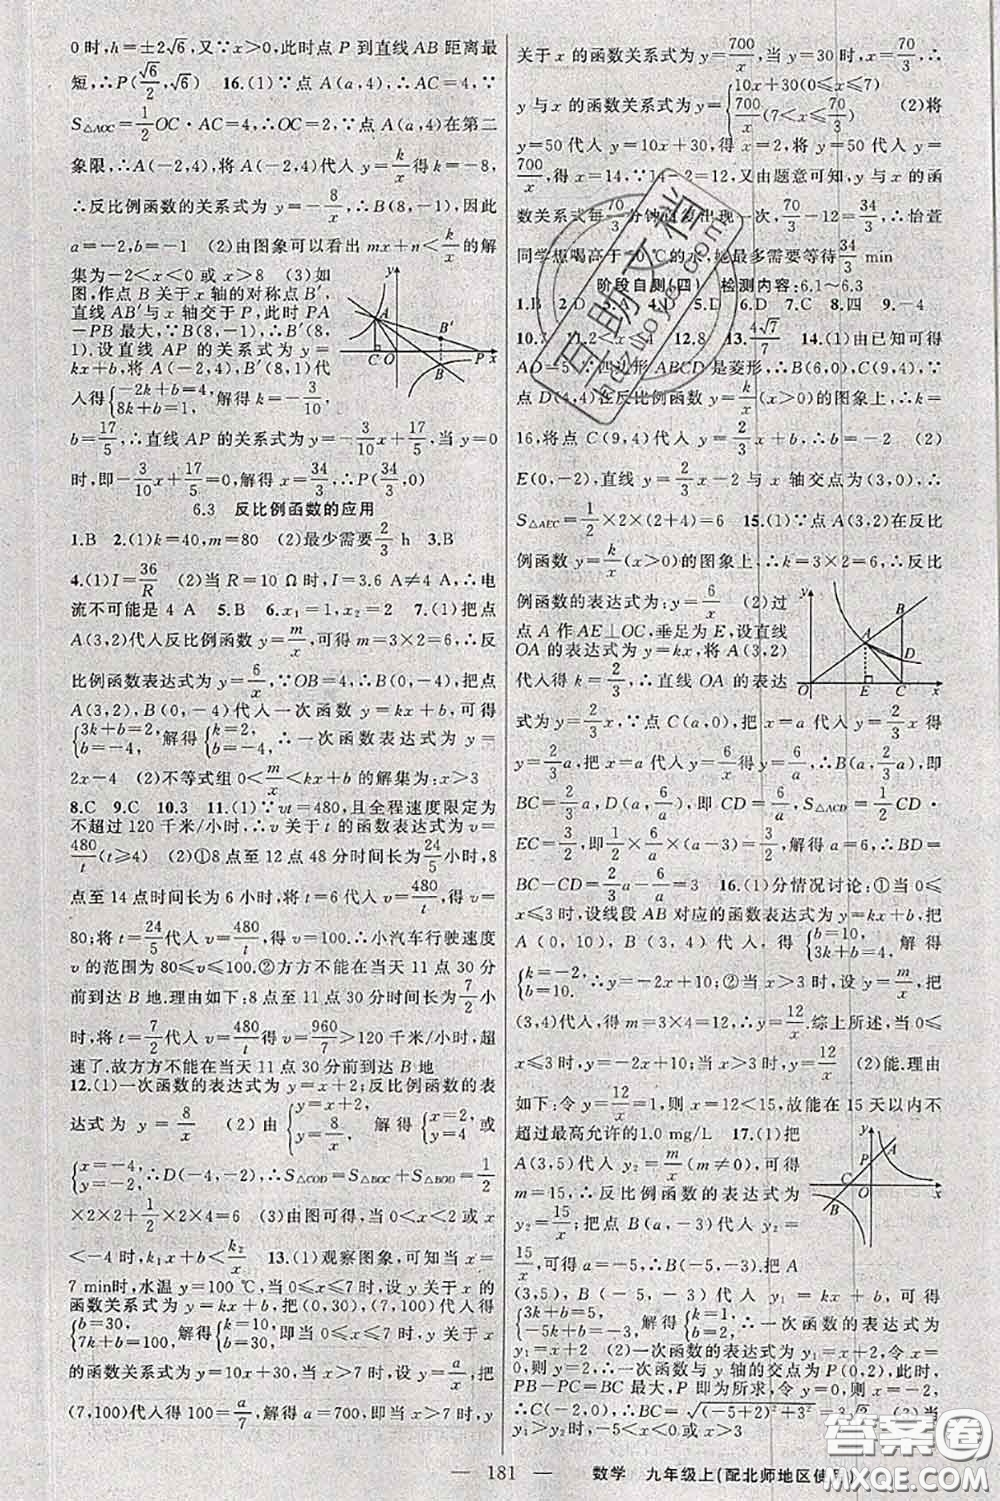 0时,h=±2√6,又∵x>0,此时点 P 到直线 AB 距离最
短,∴P(√6/2,√6) 16.(1)∵点 A(a,4),∴AC=4,∵
S△AOC=1/2 OC·AC=4,∴OC=2,∵点 A(a,4)在第二
象限,∴A(-2,4),将 A(-2,4)代入 y=k/x得 k=-8,
∴反比例函数的关系式为 y=-8/x,∴B(8,-1),因此
a=-2,b=-1 (2)由图象可以看出 mx+n<k/x的解
集为-2<x<0 或 x>8 (3)如
图,作点 B 关于 x 轴的对称点 B′,
直线 AB′与 x 轴交于 P,此时 PA
-PB 最大,∵B(8,-1),∴B′(8,
1),设直线 AP 的关系式为 y=
kx+b,将 A(-2,4),B′(8,1)代
入得{-2k+b=4, 8k+b=1, 解得 k=-3/10,
b=17/5,∴直线 AP 的关系式为 y=-3/10x+17/5,当 y=0
时,即-3/10x+17/5=0,解得 x=34/3,∴P(34/3,0)
6.3 反比例函数的应用
1.B 2.(1)k=40,m=80 (2)最少需要2/3 h 3.B
4.(1)I=36/R (2)当 R=10 Ω时,I=3.6 A≠4 A,∴电
流不可能是 4 A 5.B 6.x₁=1,x₂=2 7.(1)把点
A(3,2)代入反比例函数 y=m/x,可得 m=3×2=6,∴反
比例函数表达式为 y=6/x,∵OB=4,∴B(0,-4),把点
A(3,2),B(0,-4)代入一次函数 y=kx+b,可得
{3k+b=2, b=-4, 解得{k=2, b=-4, ∴一次函数表达式为 y=
2x-4 (2)不等式组 0<m/x<kx+b 的解集为:x>3
8.C 9.C 10.3 11.(1)∵vt=480,且全程速度限定为
不超过 120 千米/小时,∴v 关于 t 的函数表达式为 v=
480/t(t≥4) (2)①8 点至 12 点 48 分时间长为24/5小时,8
点至 14 点时间长为 6 小时,将 t=6 代入 v=480/t得 v=
80;将 t=24/5代入 v=480/t得 v=100.∴小汽车行驶速度
v 的范围为 80≤v≤100.②方方不能在当天 11 点 30 分
前到达 B 地.理由如下:8 点至 11 点 30 分时间长为7/2小
时,将 t=7/2代入 v=480/t得 v=960/7>120 千米/小时,超
速了.故方方不能在当天 11 点 30 分前到达 B 地
12.(1)一次函数的表达式为 y=x+2;反比例函数的表
达式为 y=8/x (2)由{y=x+2, y=8/x, 解得{x=2, y=4 或
{x=-4, y=-2, ∴D(-4,-2),∴S△COD=S△BOC+S△BOD=1/2
×2×2+1/2×2×4=6 (3)由图可得,当 0<x<2 或 x
<-4 时,k₁x+b<k₂/x 13.(1)观察图象,可知当 x=
7 min时,水温 y=100 ℃,当 0≤x≤7 时,设 y 关于 x 的
函数关系式为 y=kx+b,把(0,30),(7,100)代入得
{b=30, 7k+b=100, 解得{k=10, b=30, 即当 0≤x≤7 时,y 关于 x
的函数关系式为 y=10x+30,当 x>7 时,设 y=a/x,把
(7,100)代入得 100=a/7,解得 a=700,即当 x>7 时,y
关于 x 的函数关系式为 y=700/x,当 y=30 时,x=70/3,∴
y 与 x 的函数关系式为 y={10x+30(0≤x≤7) 700/x(7<x≤70/3) (2)将
y=50 代入 y=10x+30,得 x=2,将 y=50 代入 y=
700/x,得 x=14,∵14-2=12,又由题意可知,y 与 x 的函
数关系式每70/3分钟重复出现一次,70/3-12=34/3,∴怡萱
同学想喝高于50 ℃的水,她最多需要等待34/3 min
阶段自测(四) 检测内容:6.1~6.3
1.B 2.D 4.A 5.D 6.D 7.C 8.四 9.-4
10.7 12.8 13.4√7/7 14.(1)由已知可得
AD=5,∵四边形 ABCD 是菱形,∴B(6,0),C(9,4),∵
点 D(4,4)在反比例函数 y=k/x(x>0)的图象上,∴k=
16,将点 C(9,4)代入 y=2/3x+b,∴b=-2 (2)
E(0,-2),直线 y=2/3x-2 与 x 轴交点为(3,0),∴
S△AEC=1/2×2×(2+4)=6 15.(1)∵点 A(3,2)在反比
例函数 y=k/x(x>0)的图象上,∴k=3×2=6,∴反比
例函数的表达式为:y=6/x (2)过
点 A 作 AE⊥OC,垂足为 E,设直线
OA 的表达式为 y=kx,将 A(3,2)
代入得 k=2/3,∴直线 OA 的表达
式为 y=2/3x,∵点 C(a,0),把 x=a 代入 y=2/3x 得
y=2/3a,把 x=a 代入 y=6/x,得 y=6/a,∴B(a,2/3a),即
BC=2/3a,D(a,6/a),即 CD=6/a,∵S△ACD=1/2CD·
EC=3/2,即1/2×6/a×(a-3)=3/2,解得 a=6,∴BD=
BC-CD=2/3a-6/a=3 16.(1)分情况讨论:①当 0≤
x≤3 时,设线段 AB 对应的函数表达式为 y=kx+b,把
A(0,10),B(3,4)代入得{b=10, 3k+b=4, 解得
{k=-2, b=10. ∴y=-2x+10;②当 x>3 时,设 y=m/x,把
(3,4)代入得 m=3×4=12,∴y=12/x.综上所述,当 0≤
x≤3 时,y=-2x+10;当 x>3 时,y=12/x (2)能.理由
如下:令 y=12/x=1,则 x=12<15,故能在 15 天以内不
超过最高允许的1.0 mg/L 17.(1)把
A(3,5)代入 y₂=m/x(m≠0),可得
m=15,∴反比例函数的表达式为
y₂=15/x;把点 B(a,-3)代入 y₂=
15/x,可得 a=-5,∴B(-5,-3).把 A
(3,5),B(-5,-3)代入 y₁=kx+b,可得
{3k+b=5, -5k+b=-3, 解得{k=1, b=2, ∴一次函数的表达式为
y₁=x+2 (2)一次函数的表达式为y₁=x+2,令 x=
0,则 y=2,∴一次函数与 y 轴的交点为 P(0,2),此时,
PB-PC=BC 最大,P 即为所求,令 y=0,则 x=-2,
∴C(-2,0),∴BC=√(-5+2)²+3²=3√2 (3)当
y₁>y₂时,-5<x<0 或 x>3
A B′ C O B P x y
y B A O E C x
y A P C O x B
— 181 — 数学 九年级上(配北师地区使用)
答案圈
MXQE.COM